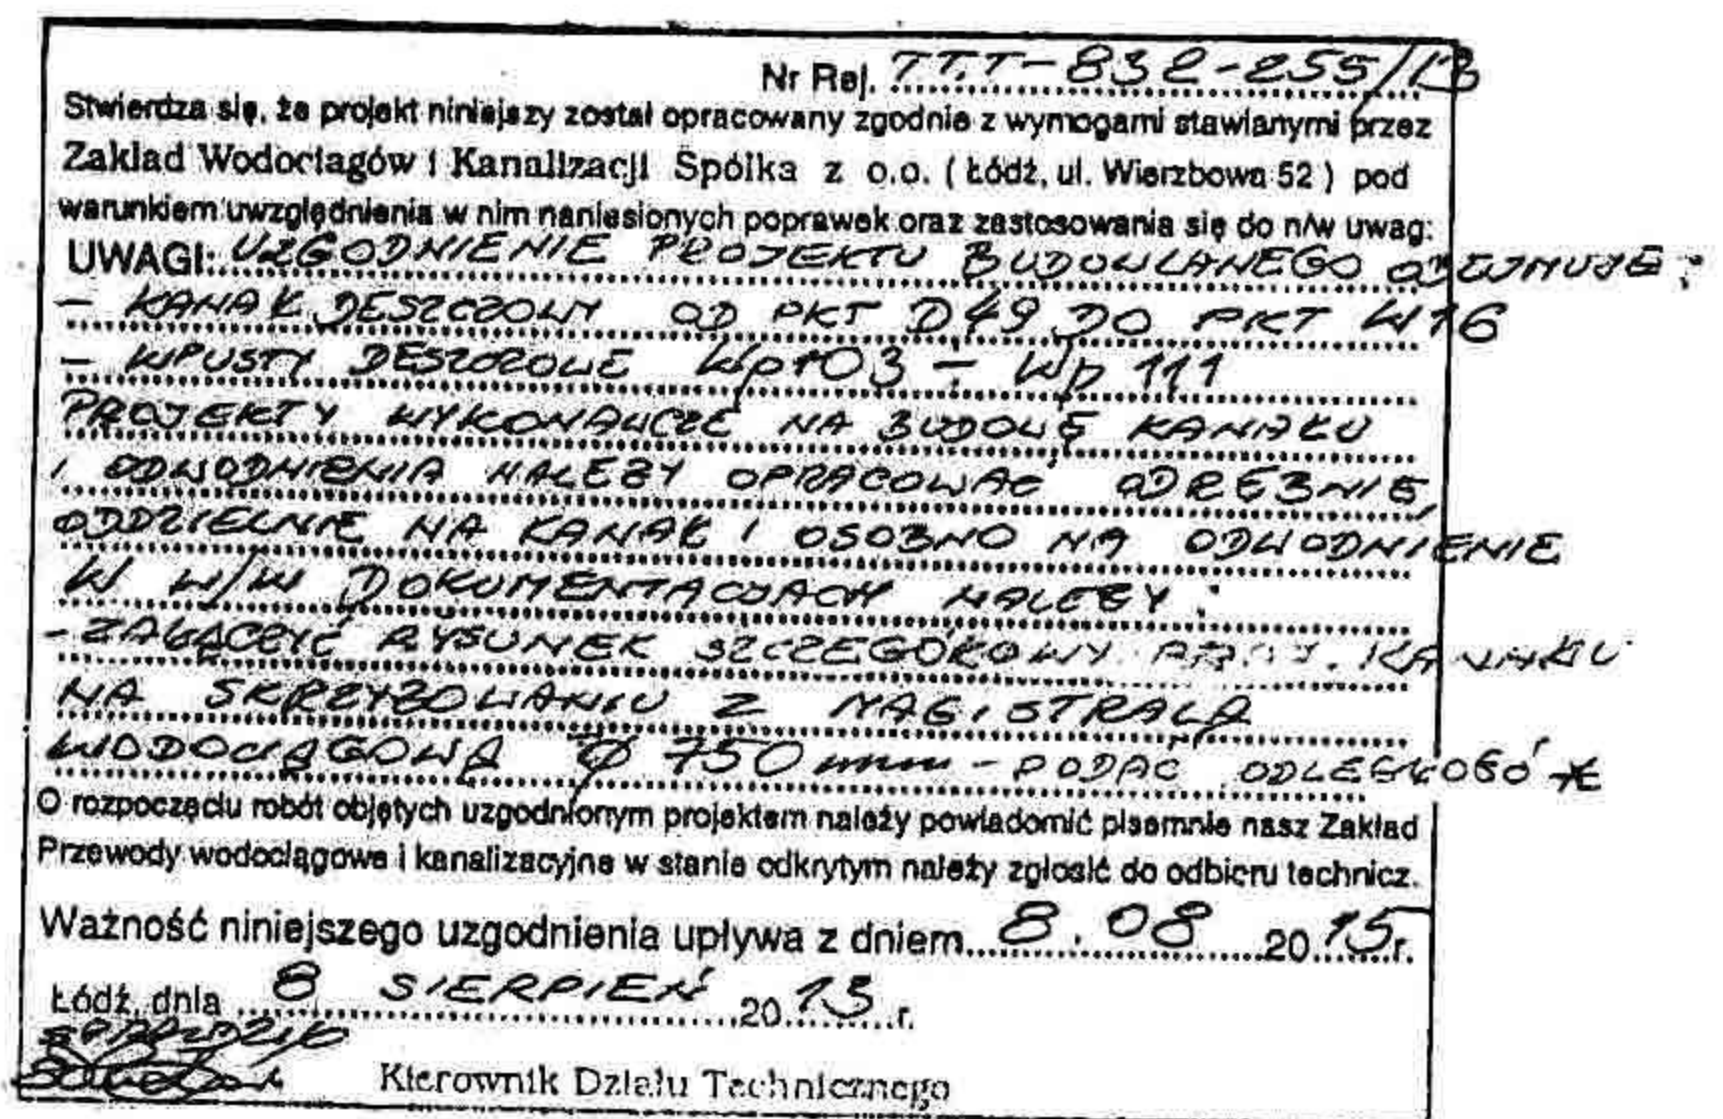 Nr Rej. TT.T-832-255/13
Stwierdza się, że projekt niniejszy został opracowany zgodnie z wymogami stawianymi przez
Zakład Wodociągów i Kanalizacji Spółka z o.o. ( Łódź, ul. Wierzbowa 52 ) pod
warunkiem uwzględnienia w nim naniesionych poprawek oraz zastosowania się do n/w uwag:
UWAGI: UZGODNIENIE PROJEKTU BUDOWLANEGO OBEJMUJE:
- KANAŁ DESZCZOWY OD PKT D49 DO PKT W16
- WPUSTY DESZCZOWE Wp103 ÷ Wp 111
PROJEKTY WYKONAWCZE NA BUDOWĘ KANAŁU
I ODWODNIENIA NALEŻY OPRACOWAĆ ODRĘBNIE,
ODDZIELNIE NA KANAŁ I OSOBNO NA ODWODNIENIE
W W/W DOKUMENTACJACH NALEŻY:
- ZAŁĄCZYĆ RYSUNEK SZCZEGÓŁOWY PROJ. KANAŁU
NA SKRZYŻOWANIU Z MAGISTRALĄ
WODOCIĄGOWĄ Ø 750 mm - PODAĆ ODLEGŁOŚĆ *
O rozpoczęciu robót objętych uzgodnionym projektem należy powiadomić pisemnie nasz Zakład
Przewody wodociągowe i kanalizacyjne w stanie odkrytym należy zgłosić do odbioru technicz.
Ważność niniejszego uzgodnienia upływa z dniem 8.08 2015 r.
Łódź, dnia 8 SIERPIEŃ 2013 r.
SPRAWDZIŁ
Kierownik Działu Technicznego